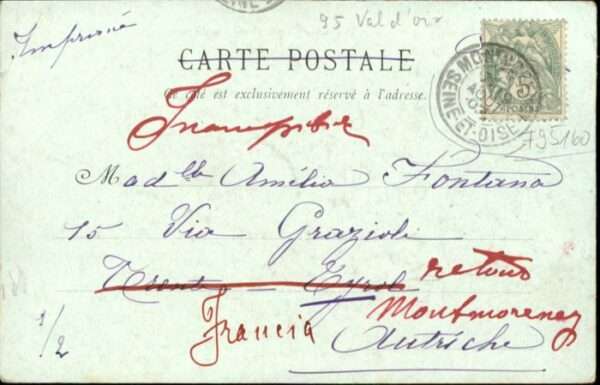 95 Val d'oise
Imprimé
CARTE POSTALE
Ce côté est exclusivement réservé à l'adresse.
MONTMORENCY
SEINE-ET-OISE
795160
Madlle Amélia Fontana
15 Via Grazioli
Trento - Tyrol
retour
1/2
Francia
Montmorency
Autriche